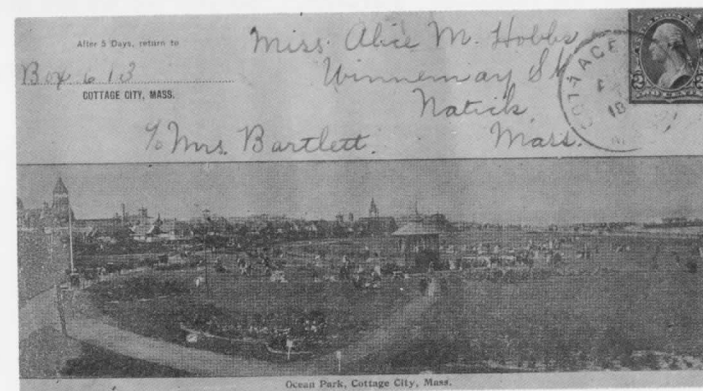 After 5 Days, return to
Box 613
COTTAGE CITY, MASS.
Miss. Alice M. Hobbs
Winnemay St
Natick
Mass.
℅ Mrs. Bartlett.
COTTAGE
18
Ocean Park, Cottage City, Mass.